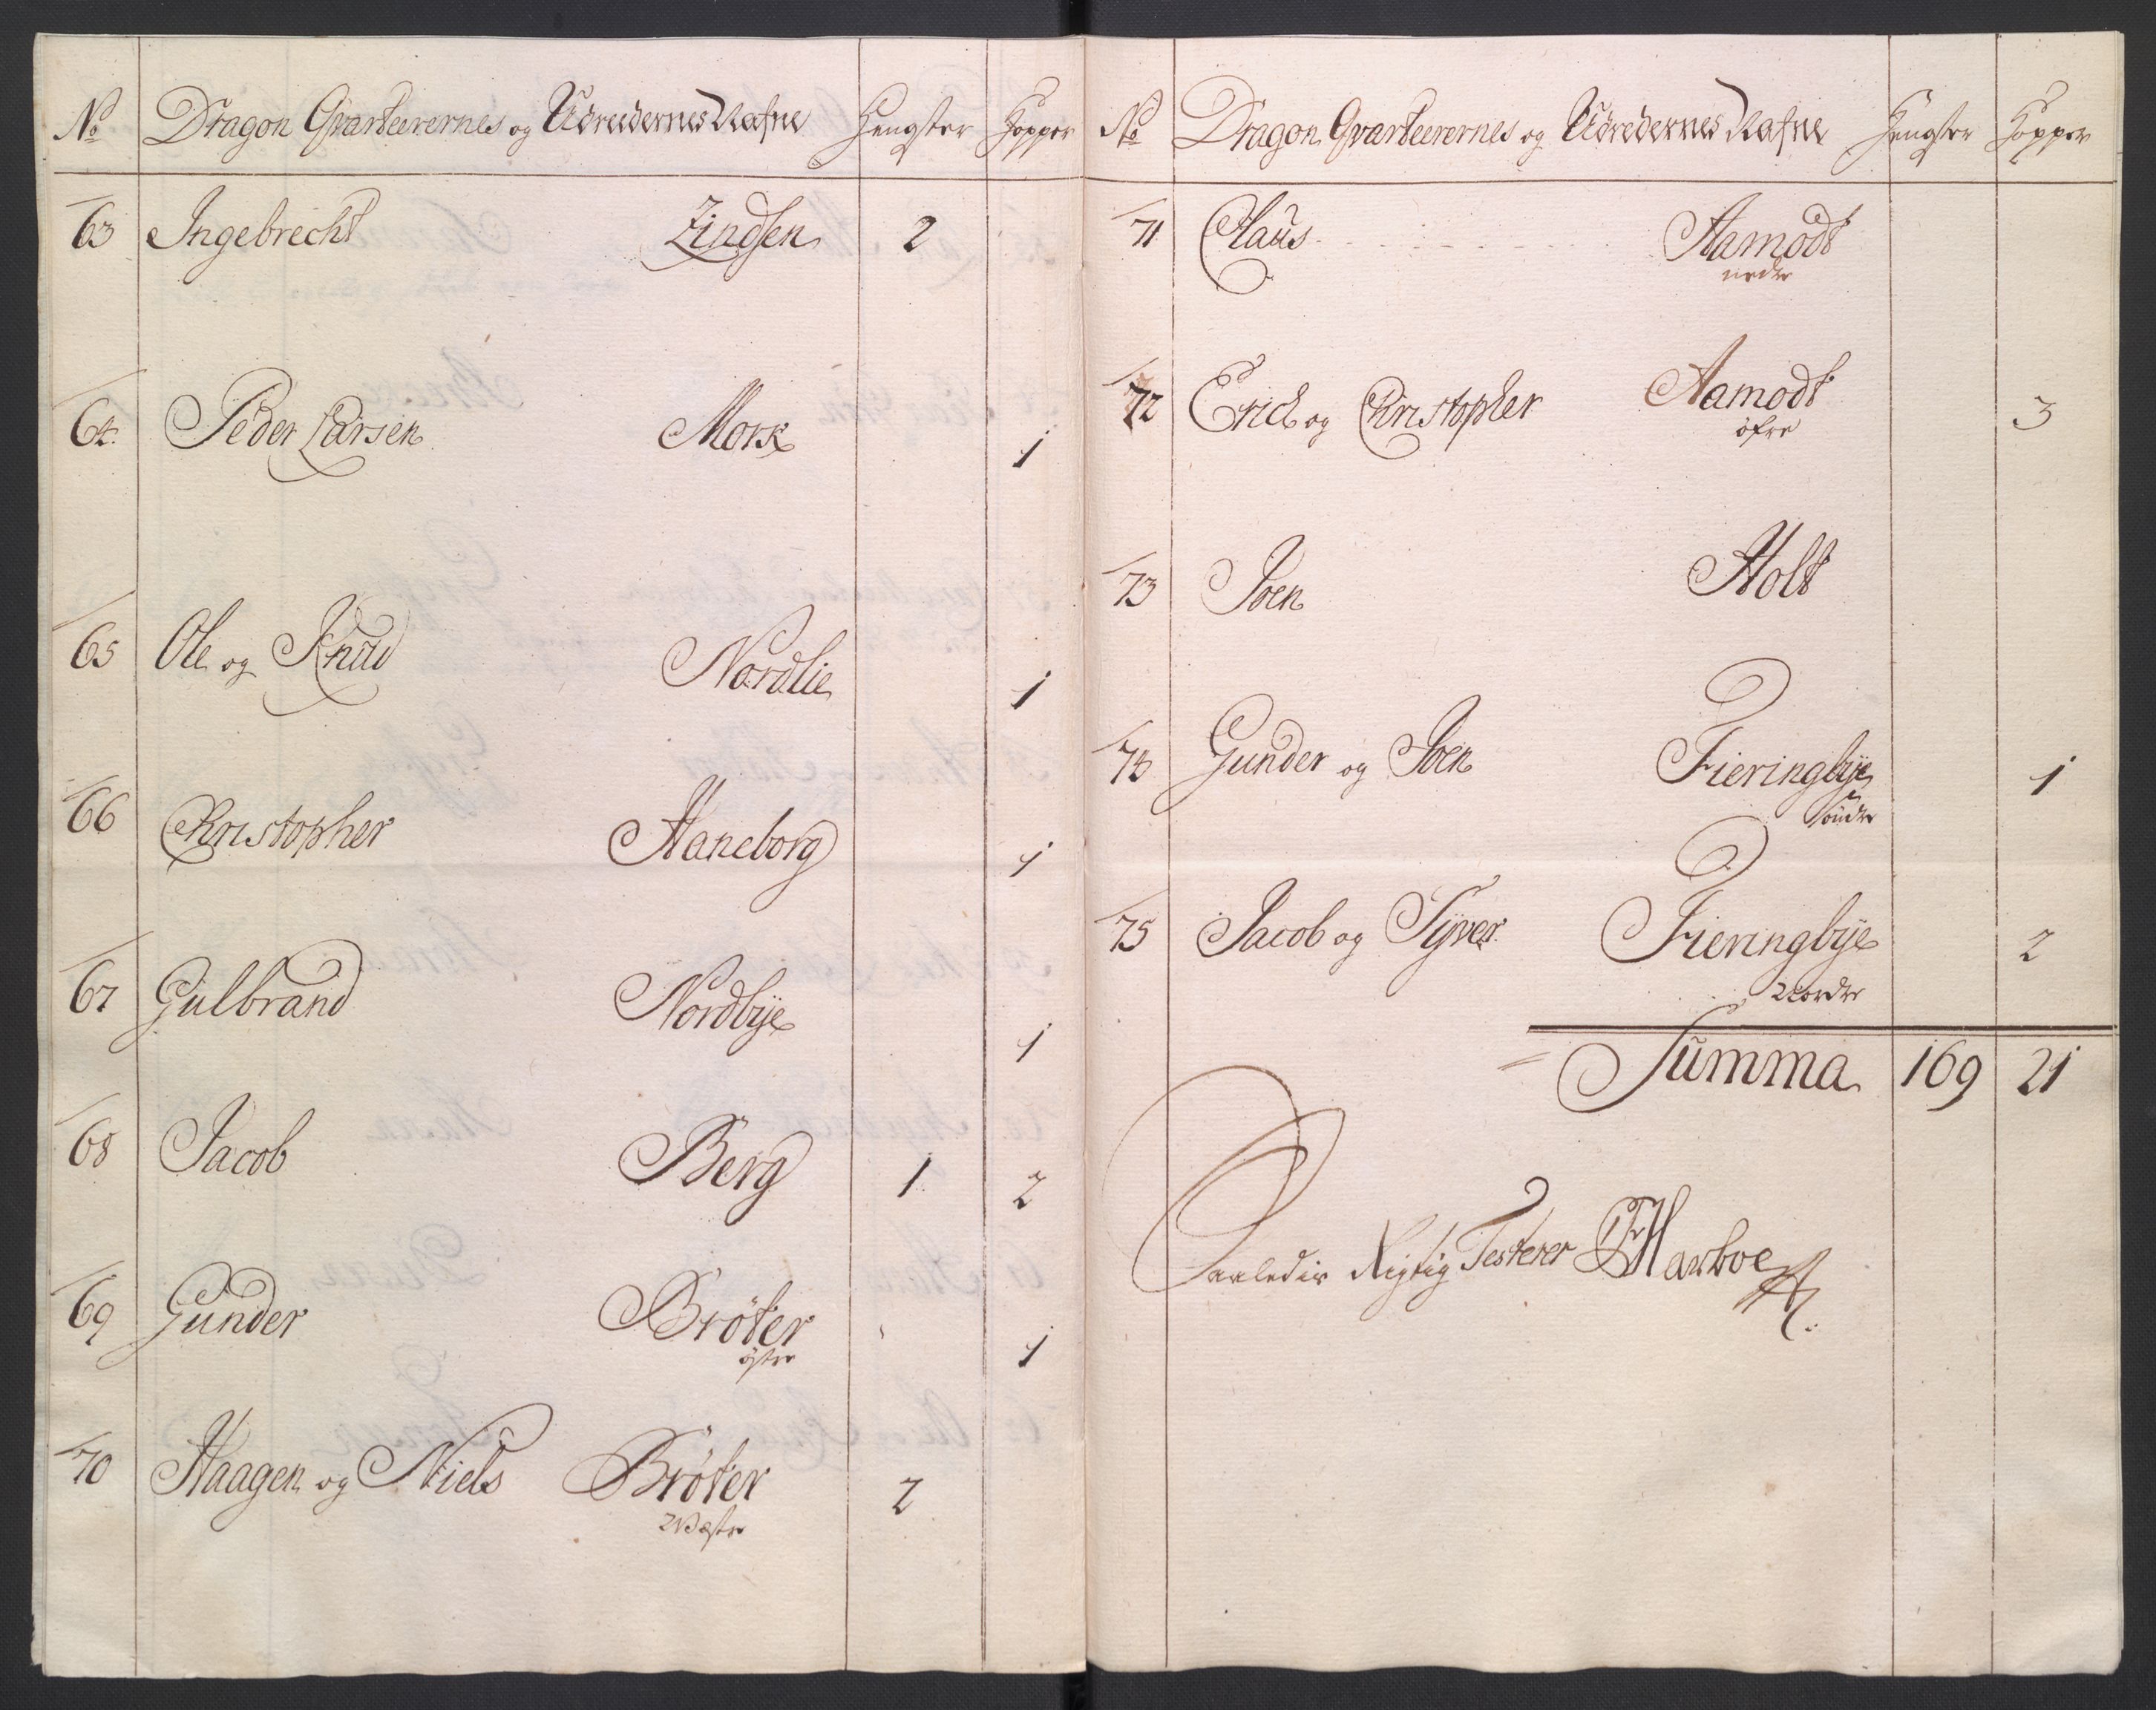 No Dragon Qvarteerernes og Udreedernes Nafne Hengster Hopper
63 Ingebrecht Lindsen 2
64 Peder Larsen Mork 1
65 Ole og Knud Nordlie 1
66 Christopher Haneborg 1
67 Gulbrand Nordbÿe 1
68 Jacob Berg 1 2
69 Gunder Brøter 1
øster
70 Haagen og Niels Brøter 2
Wæster
No Dragon Qvarteerernes og Udredernes Nafne Hengster Hopper
71 Claus Aamodt
nedre
72 Erich og Christopher Aamodt 3
øfre
73 Joen Holt
74 Gunder og Joen Fieringbÿe 1
Søndre
75 Jacob og Syver Fieringbÿe 2
Nordre
Summa 169 21
Saaledis Rigtig Testerer Harboe